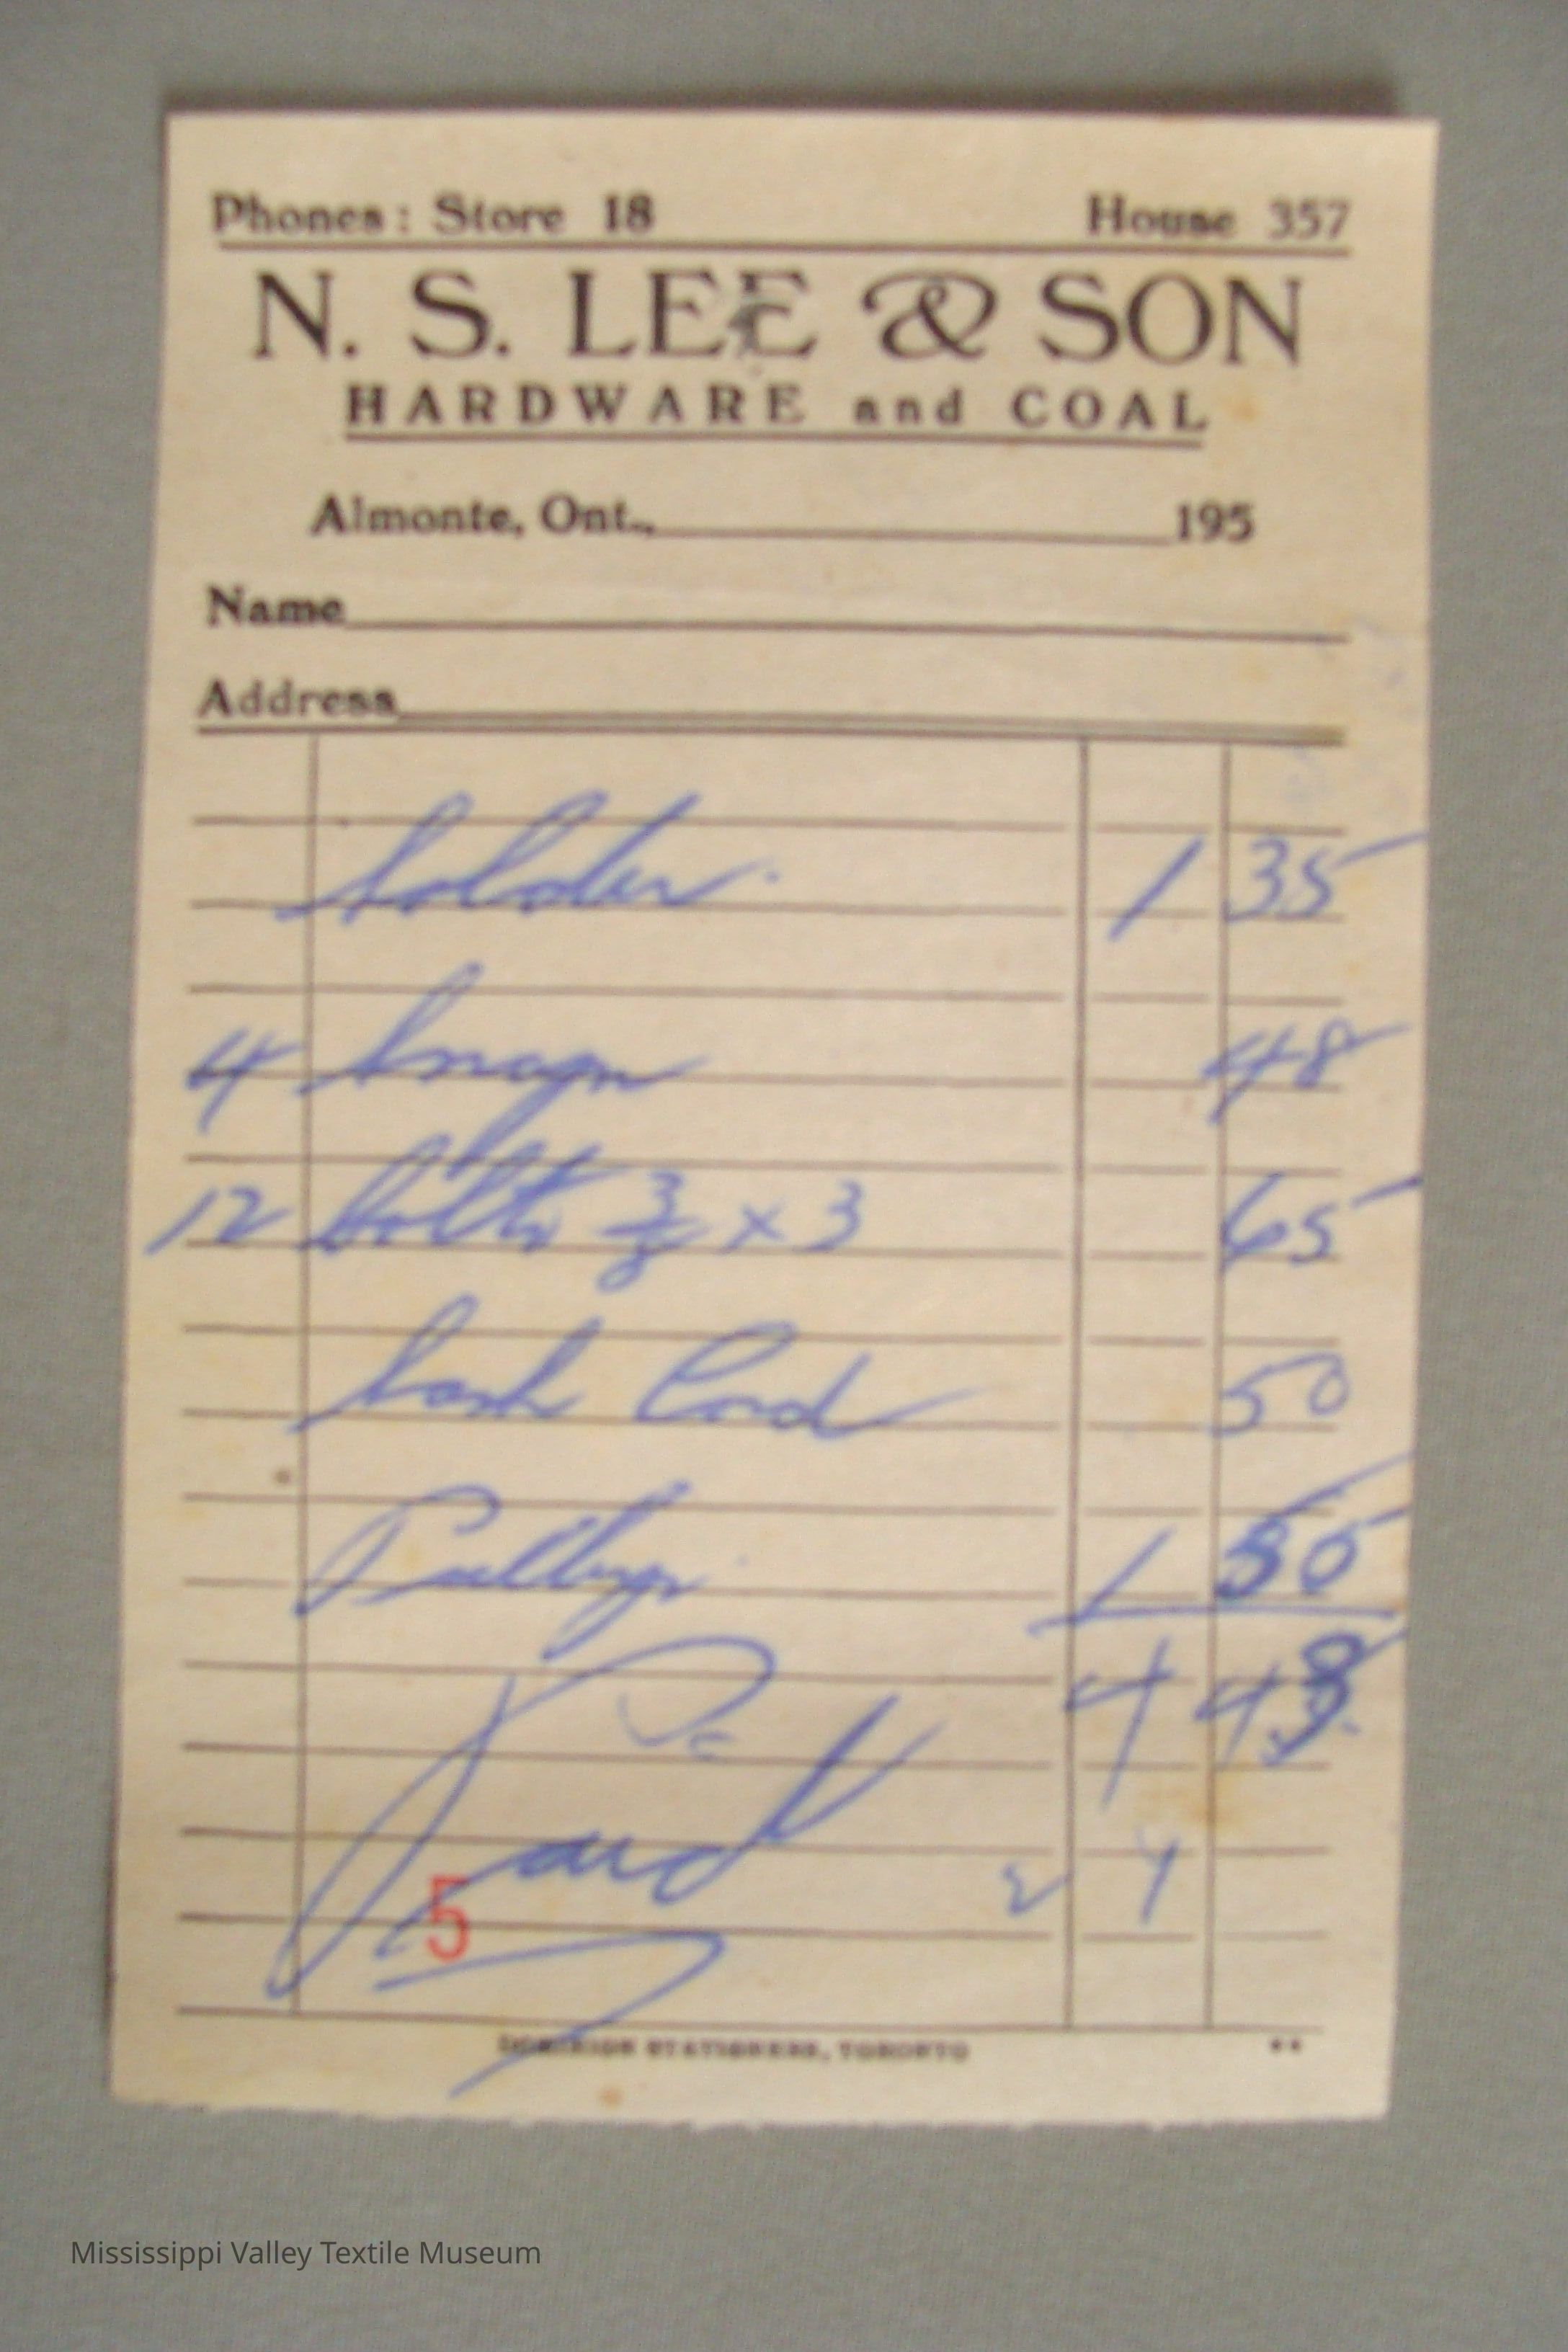 Phones: Store 18 House 357
N. S. LEE & SON
HARDWARE and COAL
Almonte, Ont., 195
Name
Address
Solder 1 35
4 Snaps 48
12 bolts 3/8 x 3 65
Sash Cord 50
Pulleys 1 50
4 48
Paid
5
DOMINION STATIONERS, TORONTO
Mississippi Valley Textile Museum